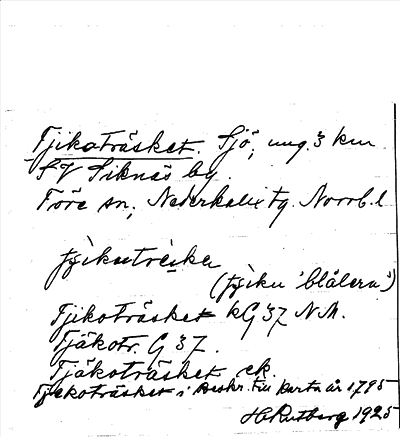 Tjikoträsket. Sjö, ung. 3 km
SV Siknäs by.
Töre sn, Nederkalix tg. Norrb. l
(tjìku 'blålera')
Tjikoträsket kG 37 N.A.
Tjäkotr. G 37.
Tjäkoträsket ek.
Tjekoträsket i Beskr. till karta år 1795
H Rutberg 1925